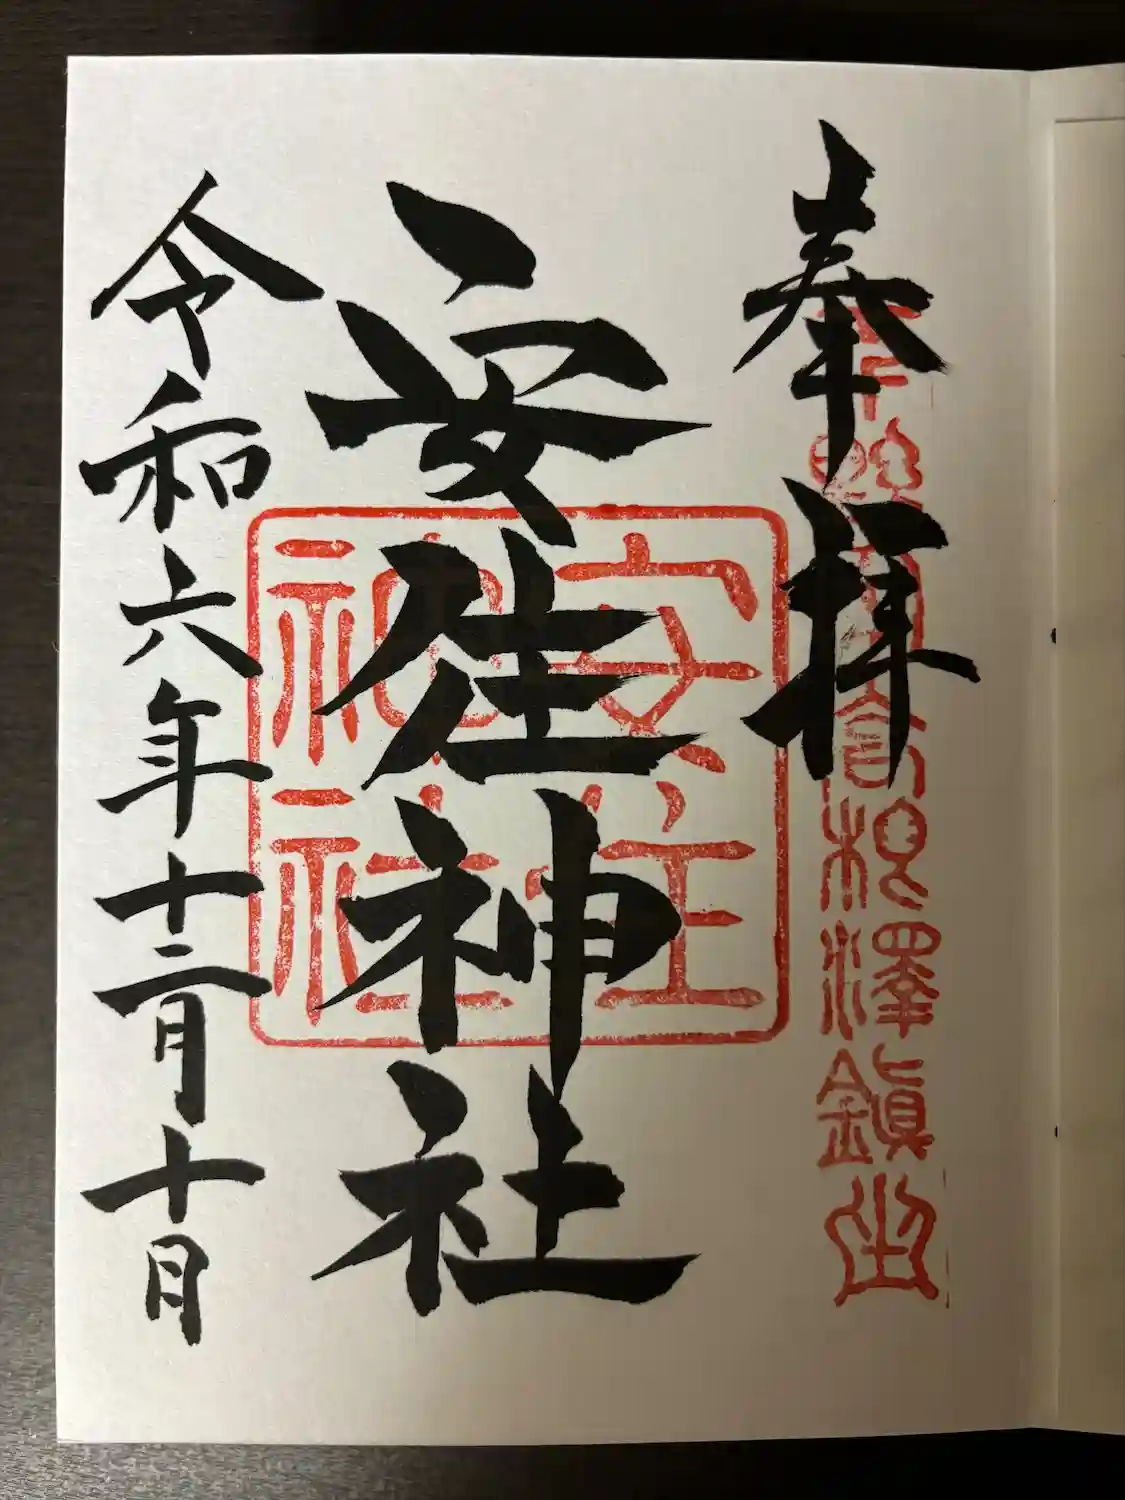 奉拝
高根澤鎮座
安住神社
安住
神社
令和六年十二月十日